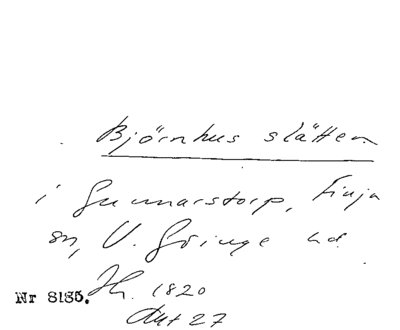 Björnhus slätten
i Gunnarstorp, Finja
sn, V. Göinge hd.
Nr 8185. Jh. 1820
Akt 27